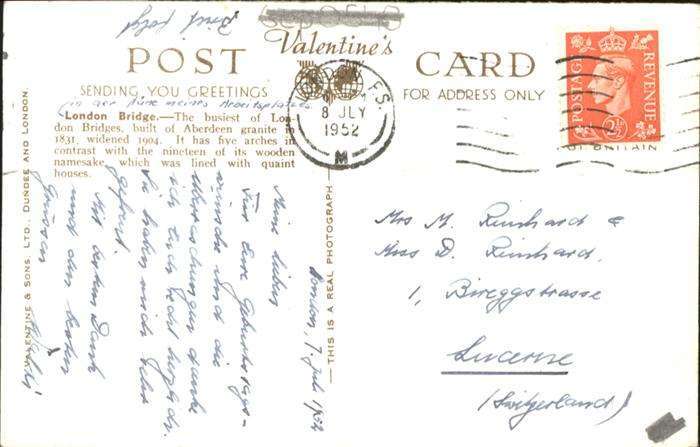 Brief folgt
Valentine's
POST CARD
SENDING YOU GREETINGS
FOR ADDRESS ONLY
(in der Nähe meines Arbeitsplatzes
London Bridge.—The busiest of Lon-
don Bridges, built of Aberdeen granite in
1831, widened 1904. It has five arches in
contrast with the nineteen of its wooden
namesake, which was lined with quaint
houses.
8 JLY
1952
M
POSTAGE
REVENUE
2½
VALENTINE & SONS, LTD., DUNDEE AND LONDON.
THIS IS A REAL PHOTOGRAPH
London, 7. Juli 1952
Meine Lieben
Für Eure Geburtstags-
wünsche und die
Überraschungen danke
ich Euch recht herzlich.
Sie haben mich sehr
gefreut.
Mit bestem Dank
und den besten
Grüssen
Mrs M. Reinhard &
Miss D. Reinhard,
1, Bireggstrasse
Lucerne
(Switzerland)